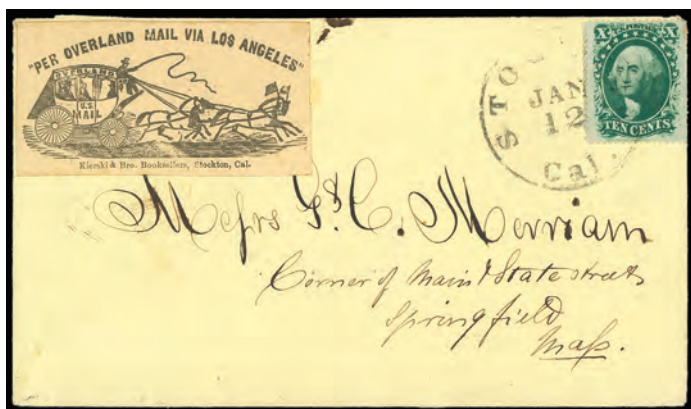 "PER OVERLAND MAIL VIA LOS ANGELES"
OVERLAND
U.S
MAIL
Kierski & Bro. Booksellers, Stockton, Cal.
STO
JAN
12
Cal.
X X
TEN CENTS
Messrs G. & C. Merriam
Corner of Main & State streets
Springfield
Mass.